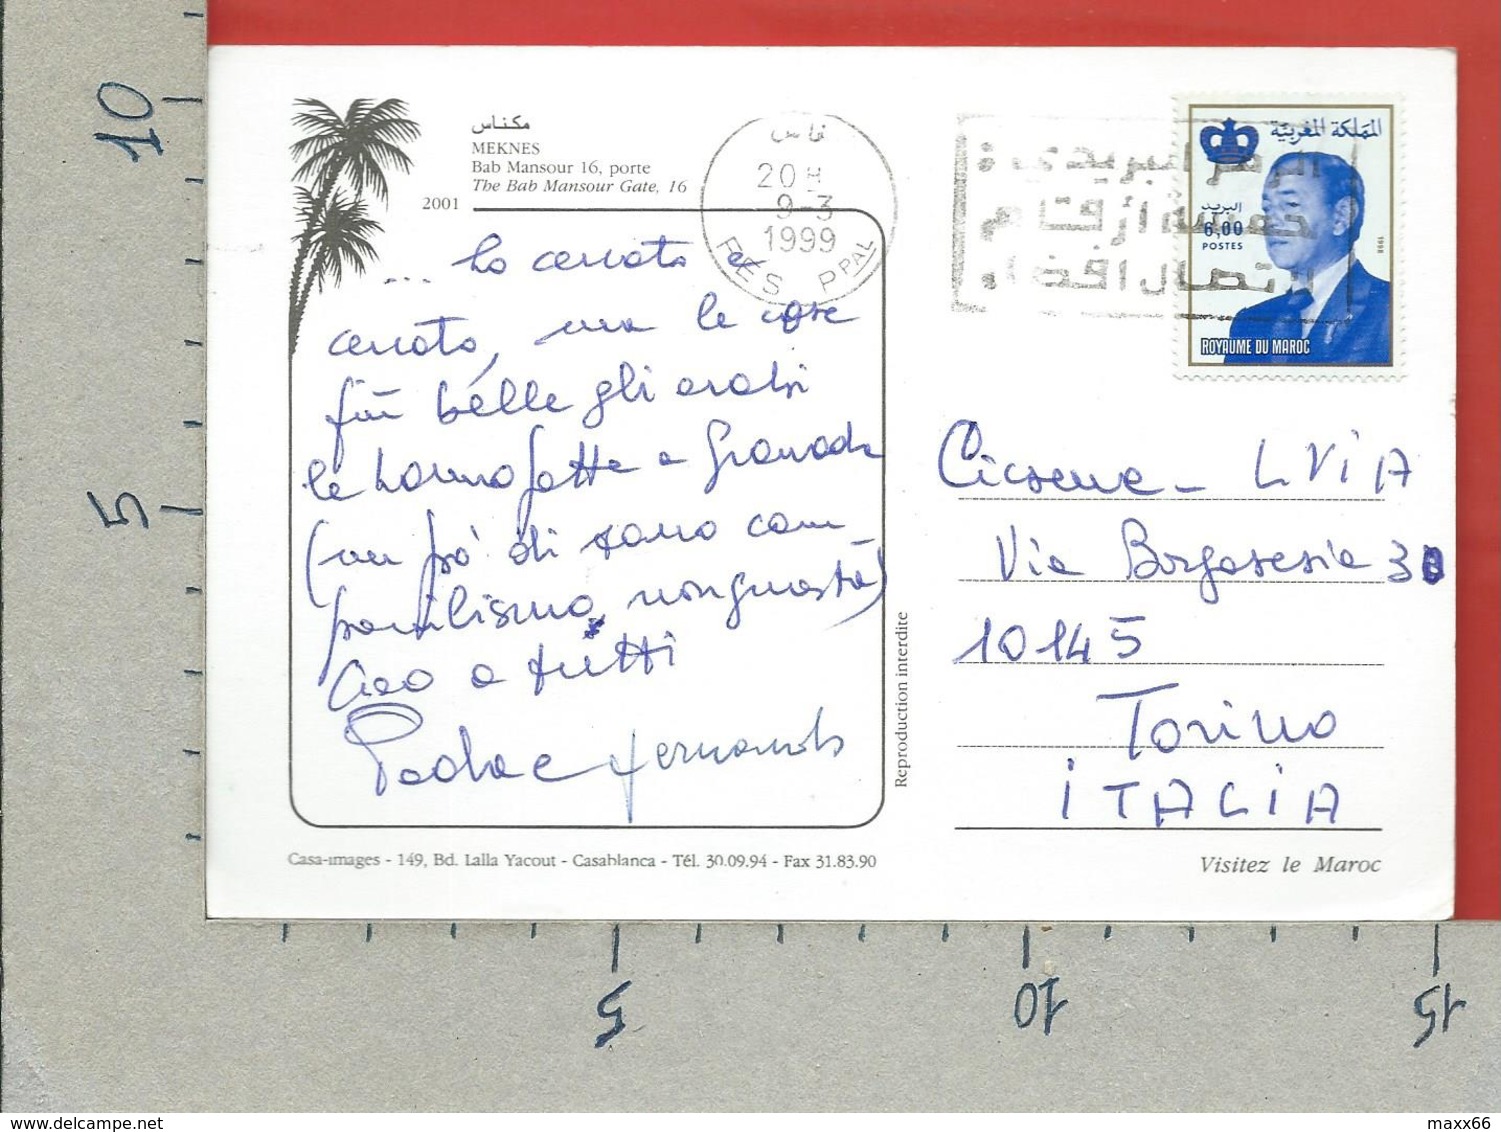 10
5
مكناس
MEKNES
Bab Mansour 16, porte
The Bab Mansour Gate, 16
2001
فاس
20H
9-3
1999
FES PPAL
الرمز البريدي :
خمسة أرقام
لاتصال أفضل.
المملكة المغربية
البريد
6,00
POSTES
1998
ROYAUME DU MAROC
... ho cercato e
cercato, ma le cose
più belle gli arabi
le hanno fatte a Granada
(un po' di sano cam
panilismo, non guasta)
Ciao a tutti
Paola e Fernando
Via Borgosesia 30
10145
Torino
ITALIA
Reproduction interdite
Casa-images - 149, Bd. Lalla Yacout - Casablanca - Tél. 30.09.94 - Fax 31.83.90
Visitez le Maroc
5
10
15
www.delcampe.net
maxx66